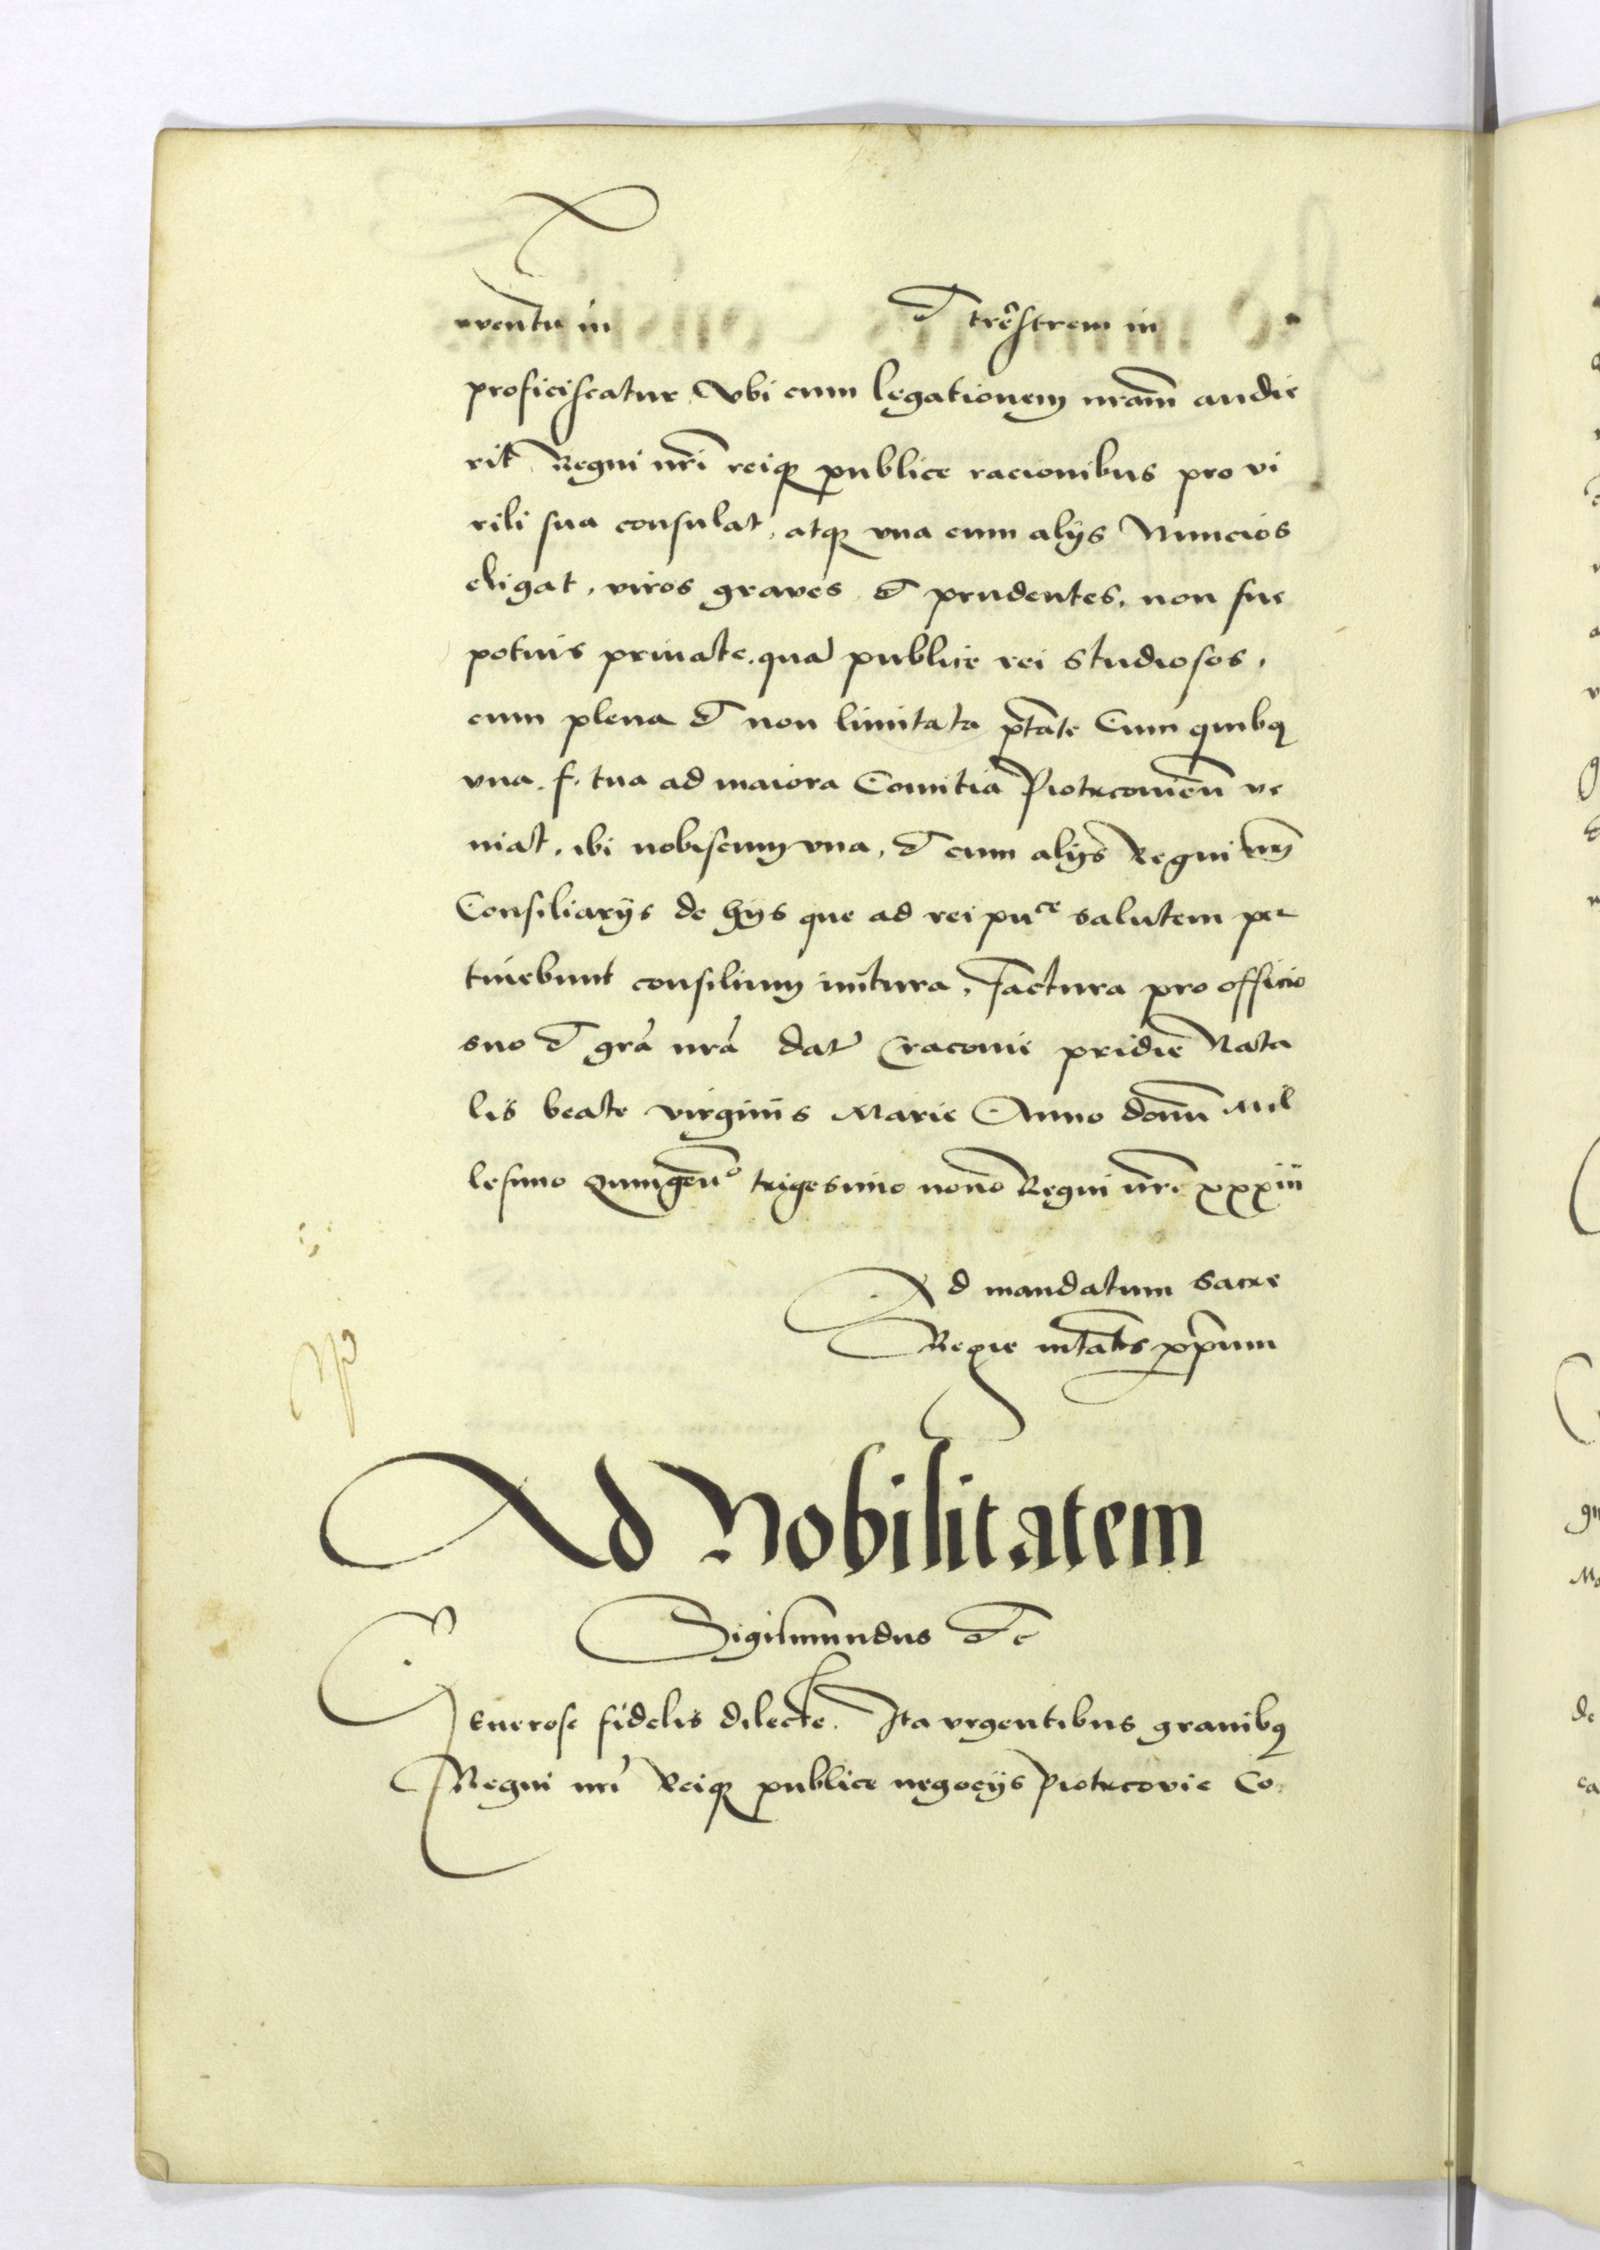 nventu in & trẽstrem in
proficiscatur. Vbi cum legationem nram̃ audie
rit Regni nri̇̃ reiq; publice racionibus pro vi
rili sua consulat, atq; vna cum alijs Nuncios
eligat, viros graves & prudentes, non sue
potius private, quã publice rei studiosos,
cum plena & non limitata ptãte Cum quibq;
vna. f. tua ad maiora Comitia Piotrcovien̄ ve
niat, ibi nobiscum vna, & cum alijs Regni nri̅
Consiliarijs de hijs que ad rei puce salutem per
tinebunt consilium initura, factura pro officio
suo & grã nrã dat̃ Craconie pridie Nata
lis beate virginis Marie Anno domi̅ Mil
lesimo Quingen̅o trigesimo nono Regni nri̅ xxxiii
Ad mandatum Sacre
Regie mtãtis pp̃rium
Ad Nobilitatem
Sigismundus & c
Generose fidelis dilecte. Ita vrgentibus gravibq;
Regni nri̅ Reiq; publice negocijs Piotrcovie Co